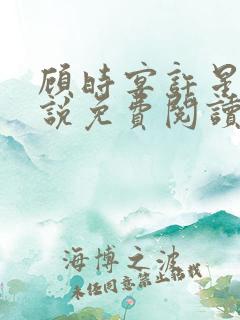 顾时宴許星
說免費閱讀
海博之波
未经同意禁止转载